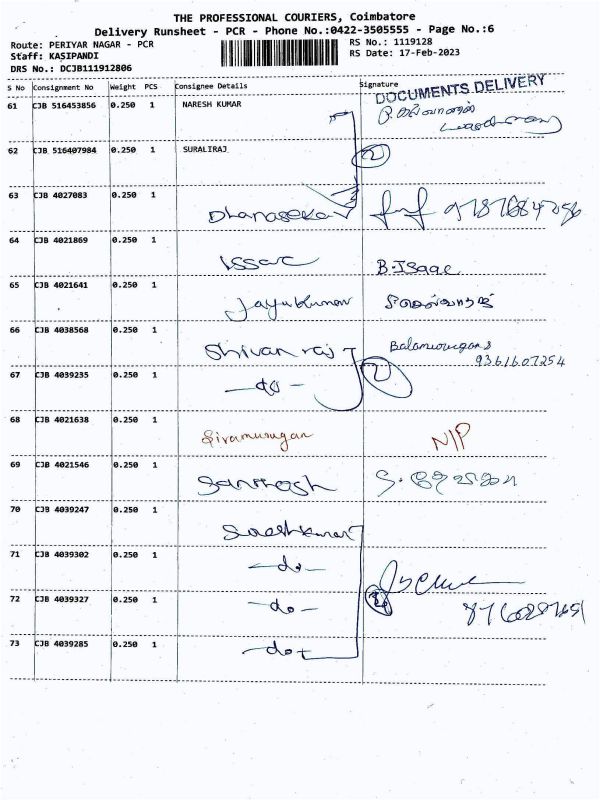 THE PROFESSIONAL COURIERS, Coimbatore
Delivery Runsheet - PCR - Phone No.:0422-3505555 - Page No.:6
Route: PERIYAR NAGAR - PCR RS No.: 1119128
Staff: KASIPANDI RS Date: 17-Feb-2023
DRS No.: DCJB111912806
S No Consignment No Weight PCS Consignee Details Signature
DOCUMENTS DELIVERY
61 CJB 516453856 0.250 1 NARESH KUMAR
62 CJB 516407984 0.250 1 SURALIRAJ 2
63 CJB 4027083 0.250 1 Dhanasekar
64 CJB 4021869 0.250 1 Issac B. Isaac
65 CJB 4021641 0.250 1 Jayakumar
66 CJB 4038568 0.250 1 Shivan raj Balamurugan S
9361607254
67 CJB 4039235 0.250 1 -do- 2
68 CJB 4021638 0.250 1 Siramurugan N/P
69 CJB 4021546 0.250 1 Santhosh
70 CJB 4039247 0.250 1 Sureshkumar
71 CJB 4039302 0.250 1 -do-
72 CJB 4039327 0.250 1 -do-
73 CJB 4039285 0.250 1 -do-